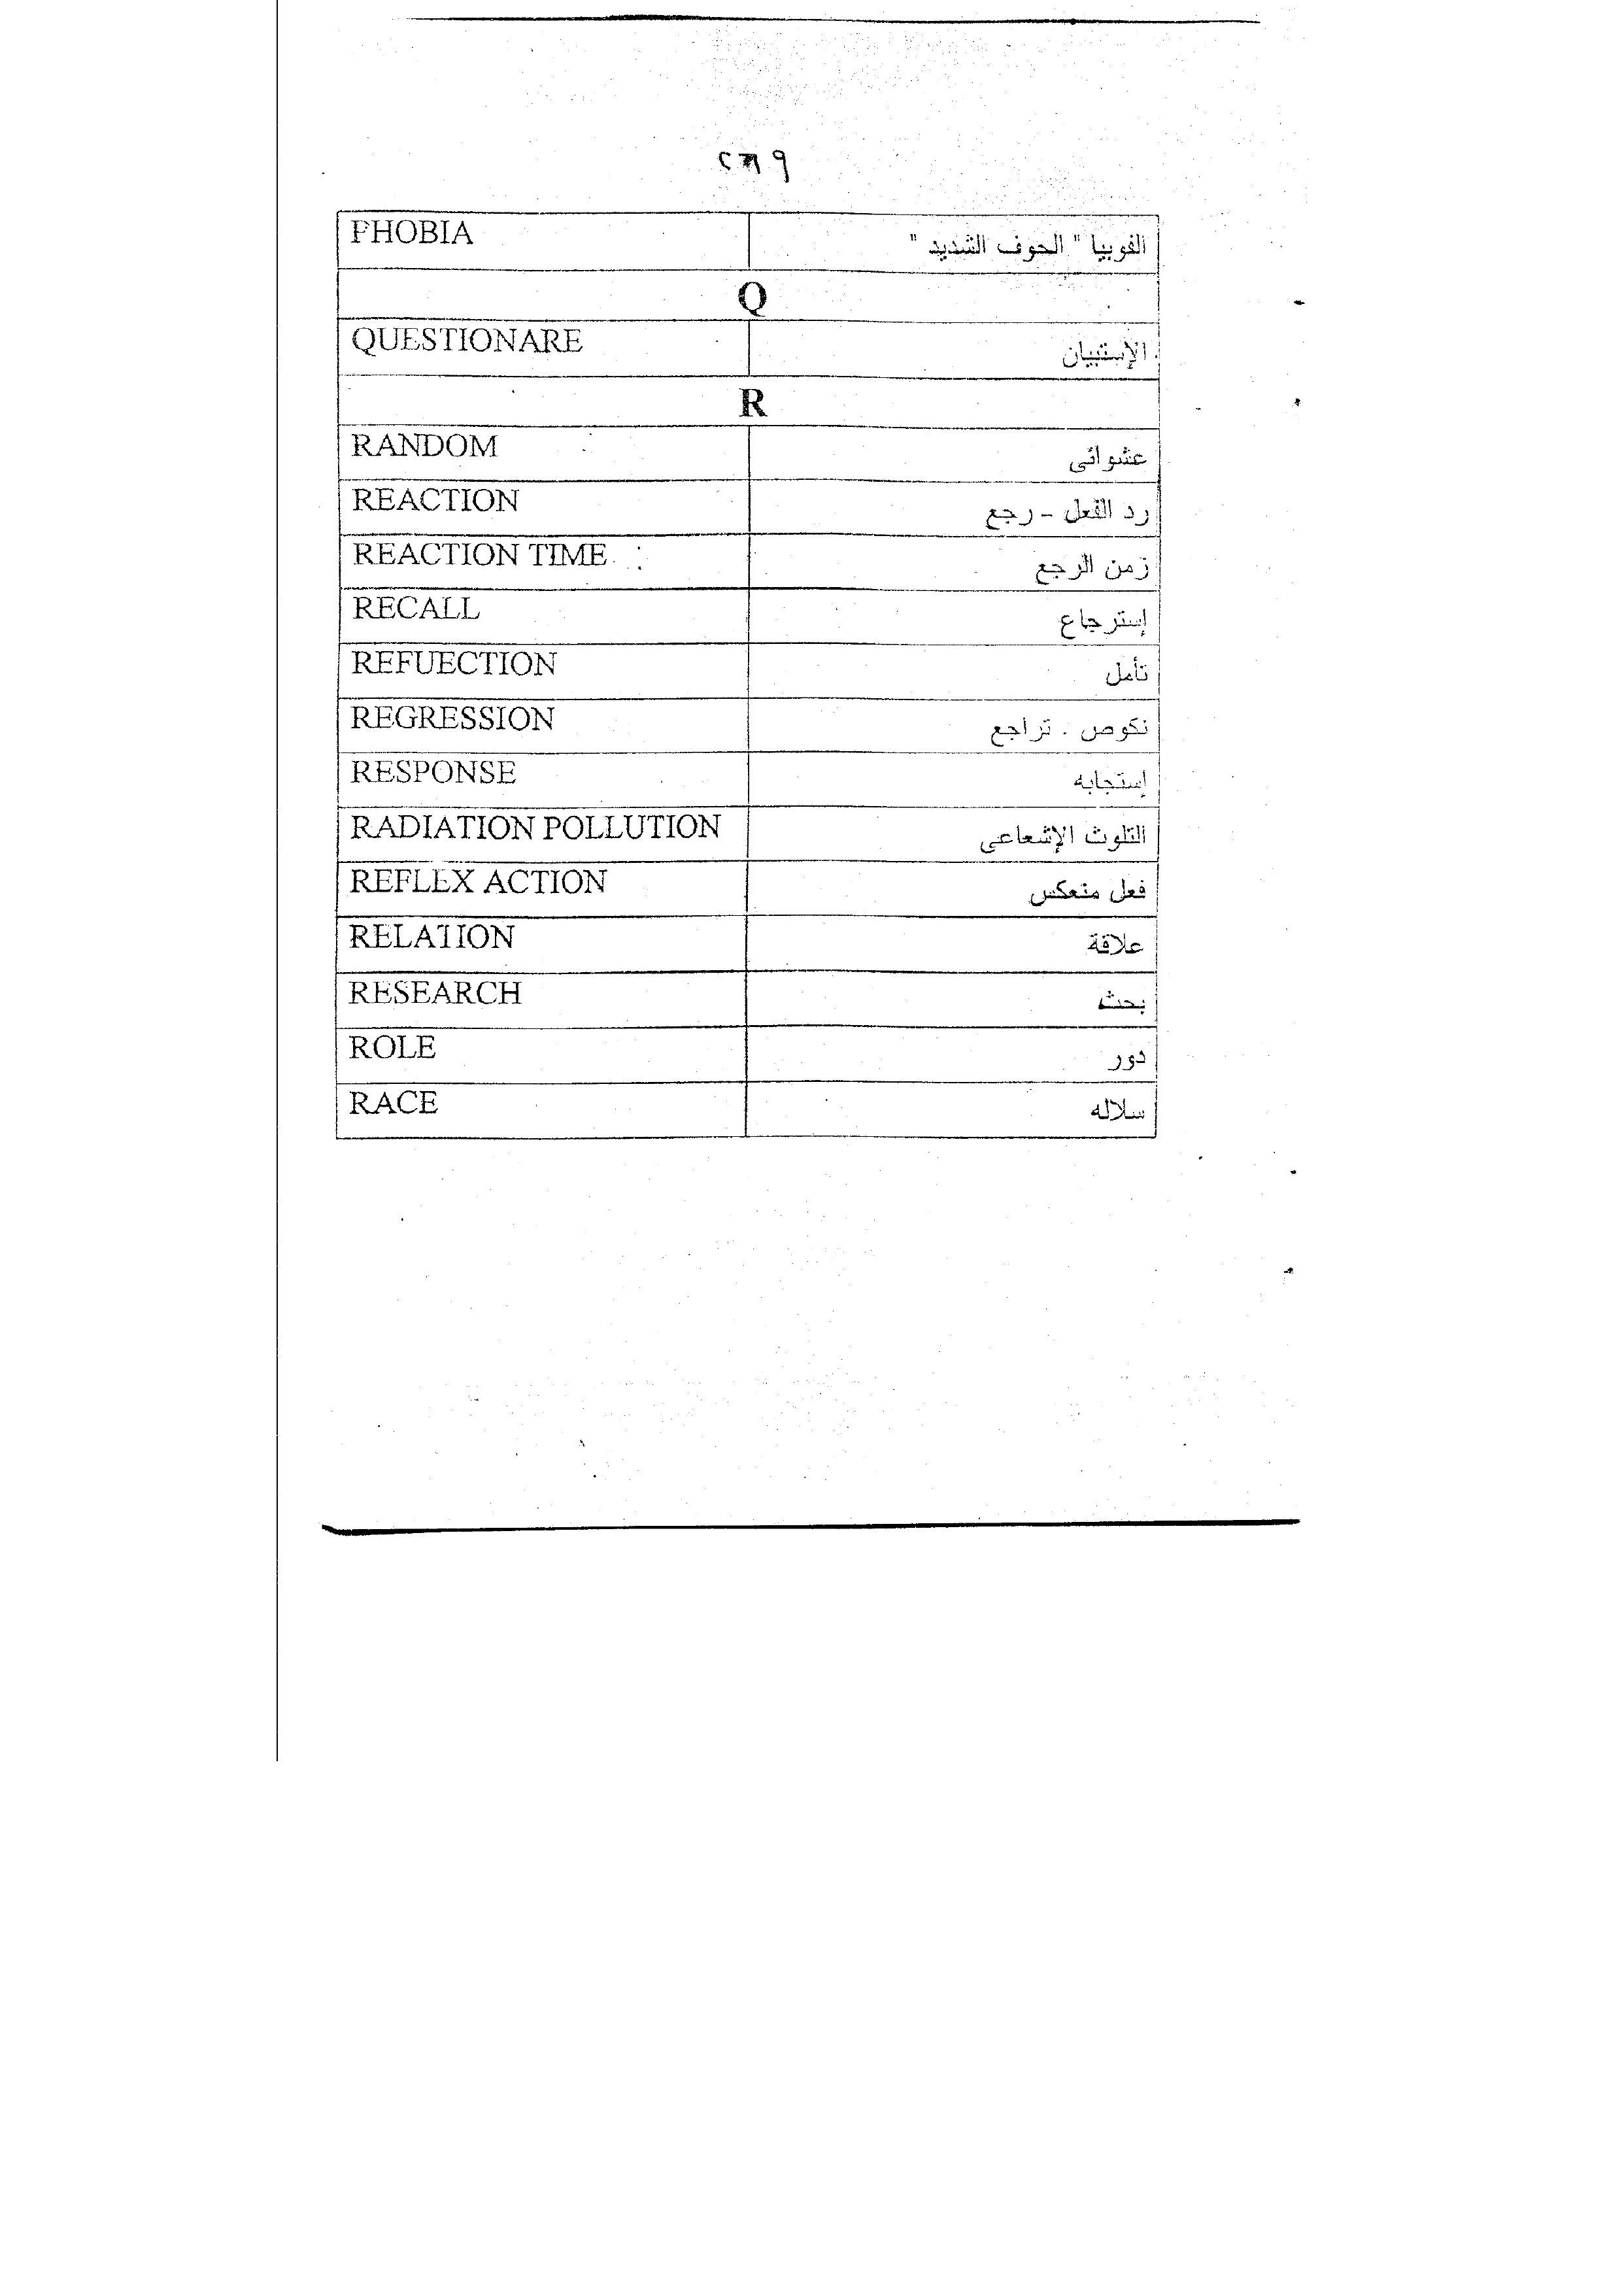 PHOBIA الفوبيا " الخوف الشديد "
Q
QUESTIONARE الإستبيان
R
RANDOM عشوائى
REACTION رد الفعل - رجع
REACTION TIME زمن الرجع
RECALL إسترجاع
REFUECTION تأمل
REGRESSION نكوص . تراجع
RESPONSE إستجابه
RADIATION POLLUTION التلوث الإشعاعى
REFLEX ACTION فعل منعكس
RELATION علاقة
RESEARCH بحث
ROLE دور
RACE سلاله